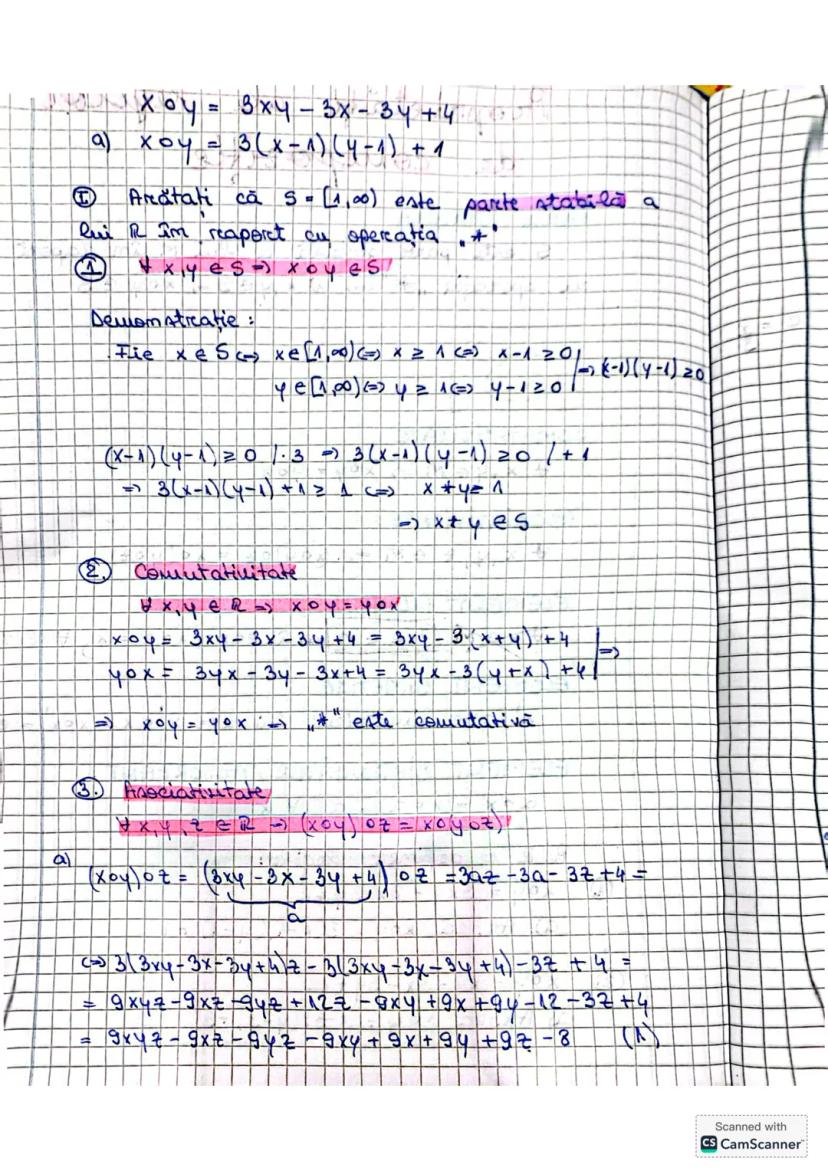 x o y = 3xy - 3x - 3y + 4
a) x o y = 3(x-1)(y-1) + 1
Ⓘ Arătați că S = [1,∞) este parte stabilă a
lui R în raport cu operația „*"
① ∀ x,y ∈ S => x o y ∈ S
Demonstrație:
Fie x ∈ S <=> x ∈ [1,∞) <=> x ≥ 1 <=> x-1 ≥ 0 | => (x-1)(y-1) ≥ 0
y ∈ [1,∞) <=> y ≥ 1 <=> y-1 ≥ 0 |
(x-1)(y-1) ≥ 0 /·3 => 3(x-1)(y-1) ≥ 0 /+1
=> 3(x-1)(y-1)+1 ≥ 1 <=> x * y = 1
=> x * y ∈ S
②. Comutativitate
∀ x,y ∈ R => x o y = y o x
x o y = 3xy - 3x - 3y + 4 = 3xy - 3·(x+y) + 4 | =>
y o x = 3yx - 3y - 3x + 4 = 3yx - 3(y+x) + 4 |
=> x o y = y o x => „*" este comutativă
③. Asociativitate
∀ x,y,z ∈ R => (x o y) o z = x o (y o z)
a)
(x o y) o z = (3xy - 3x - 3y + 4) o z = 3az - 3a - 3z + 4 =
a
<=> 3(3xy - 3x - 3y + 4)z - 3(3xy - 3x - 3y + 4) - 3z + 4 =
= 9xyz - 9xz - 9yz + 12z - 9xy + 9x + 9y - 12 - 3z + 4
= 9xyz - 9xz - 9yz - 9xy + 9x + 9y + 9z - 8 (1)
Scanned with
CS CamScanner